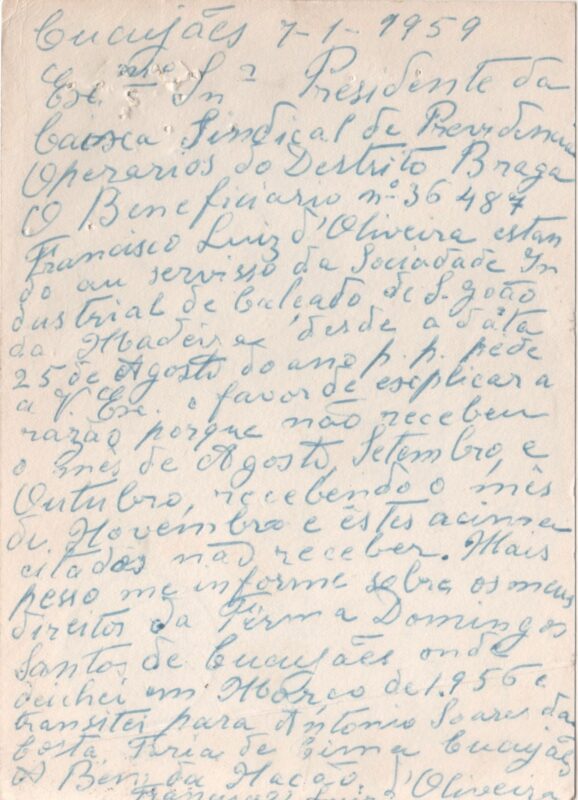 Cucujães 7-1-1959
Exmo Snr Presidente da
Caixa Sindical de Previdencia
Operarios do Destrito Braga
O Beneficiario nº 36487
Francisco Luiz d'Oliveira estan
do au servisso da Sociadade In
dustrial de Calcado de S. João
da Madeira desde a data
25 de Agosto do ano p. p. pede
a V. Exc. o favor de explicar a
razão porque não recebeu
o mês de Agosto, Setembro, e
Outubro, recebendo o mês
de Novembro e estes acima
citados não receber. Mais
pesso me informe sobre os meus
direitos da Firma Domingos
Santos de Cucujães onde
deichei em Março de 1.956 e
transitei para António Soares da
Costa, Faria de Cima Cucujães
A Bem da Nação
Francisco Luiz d'Oliveira